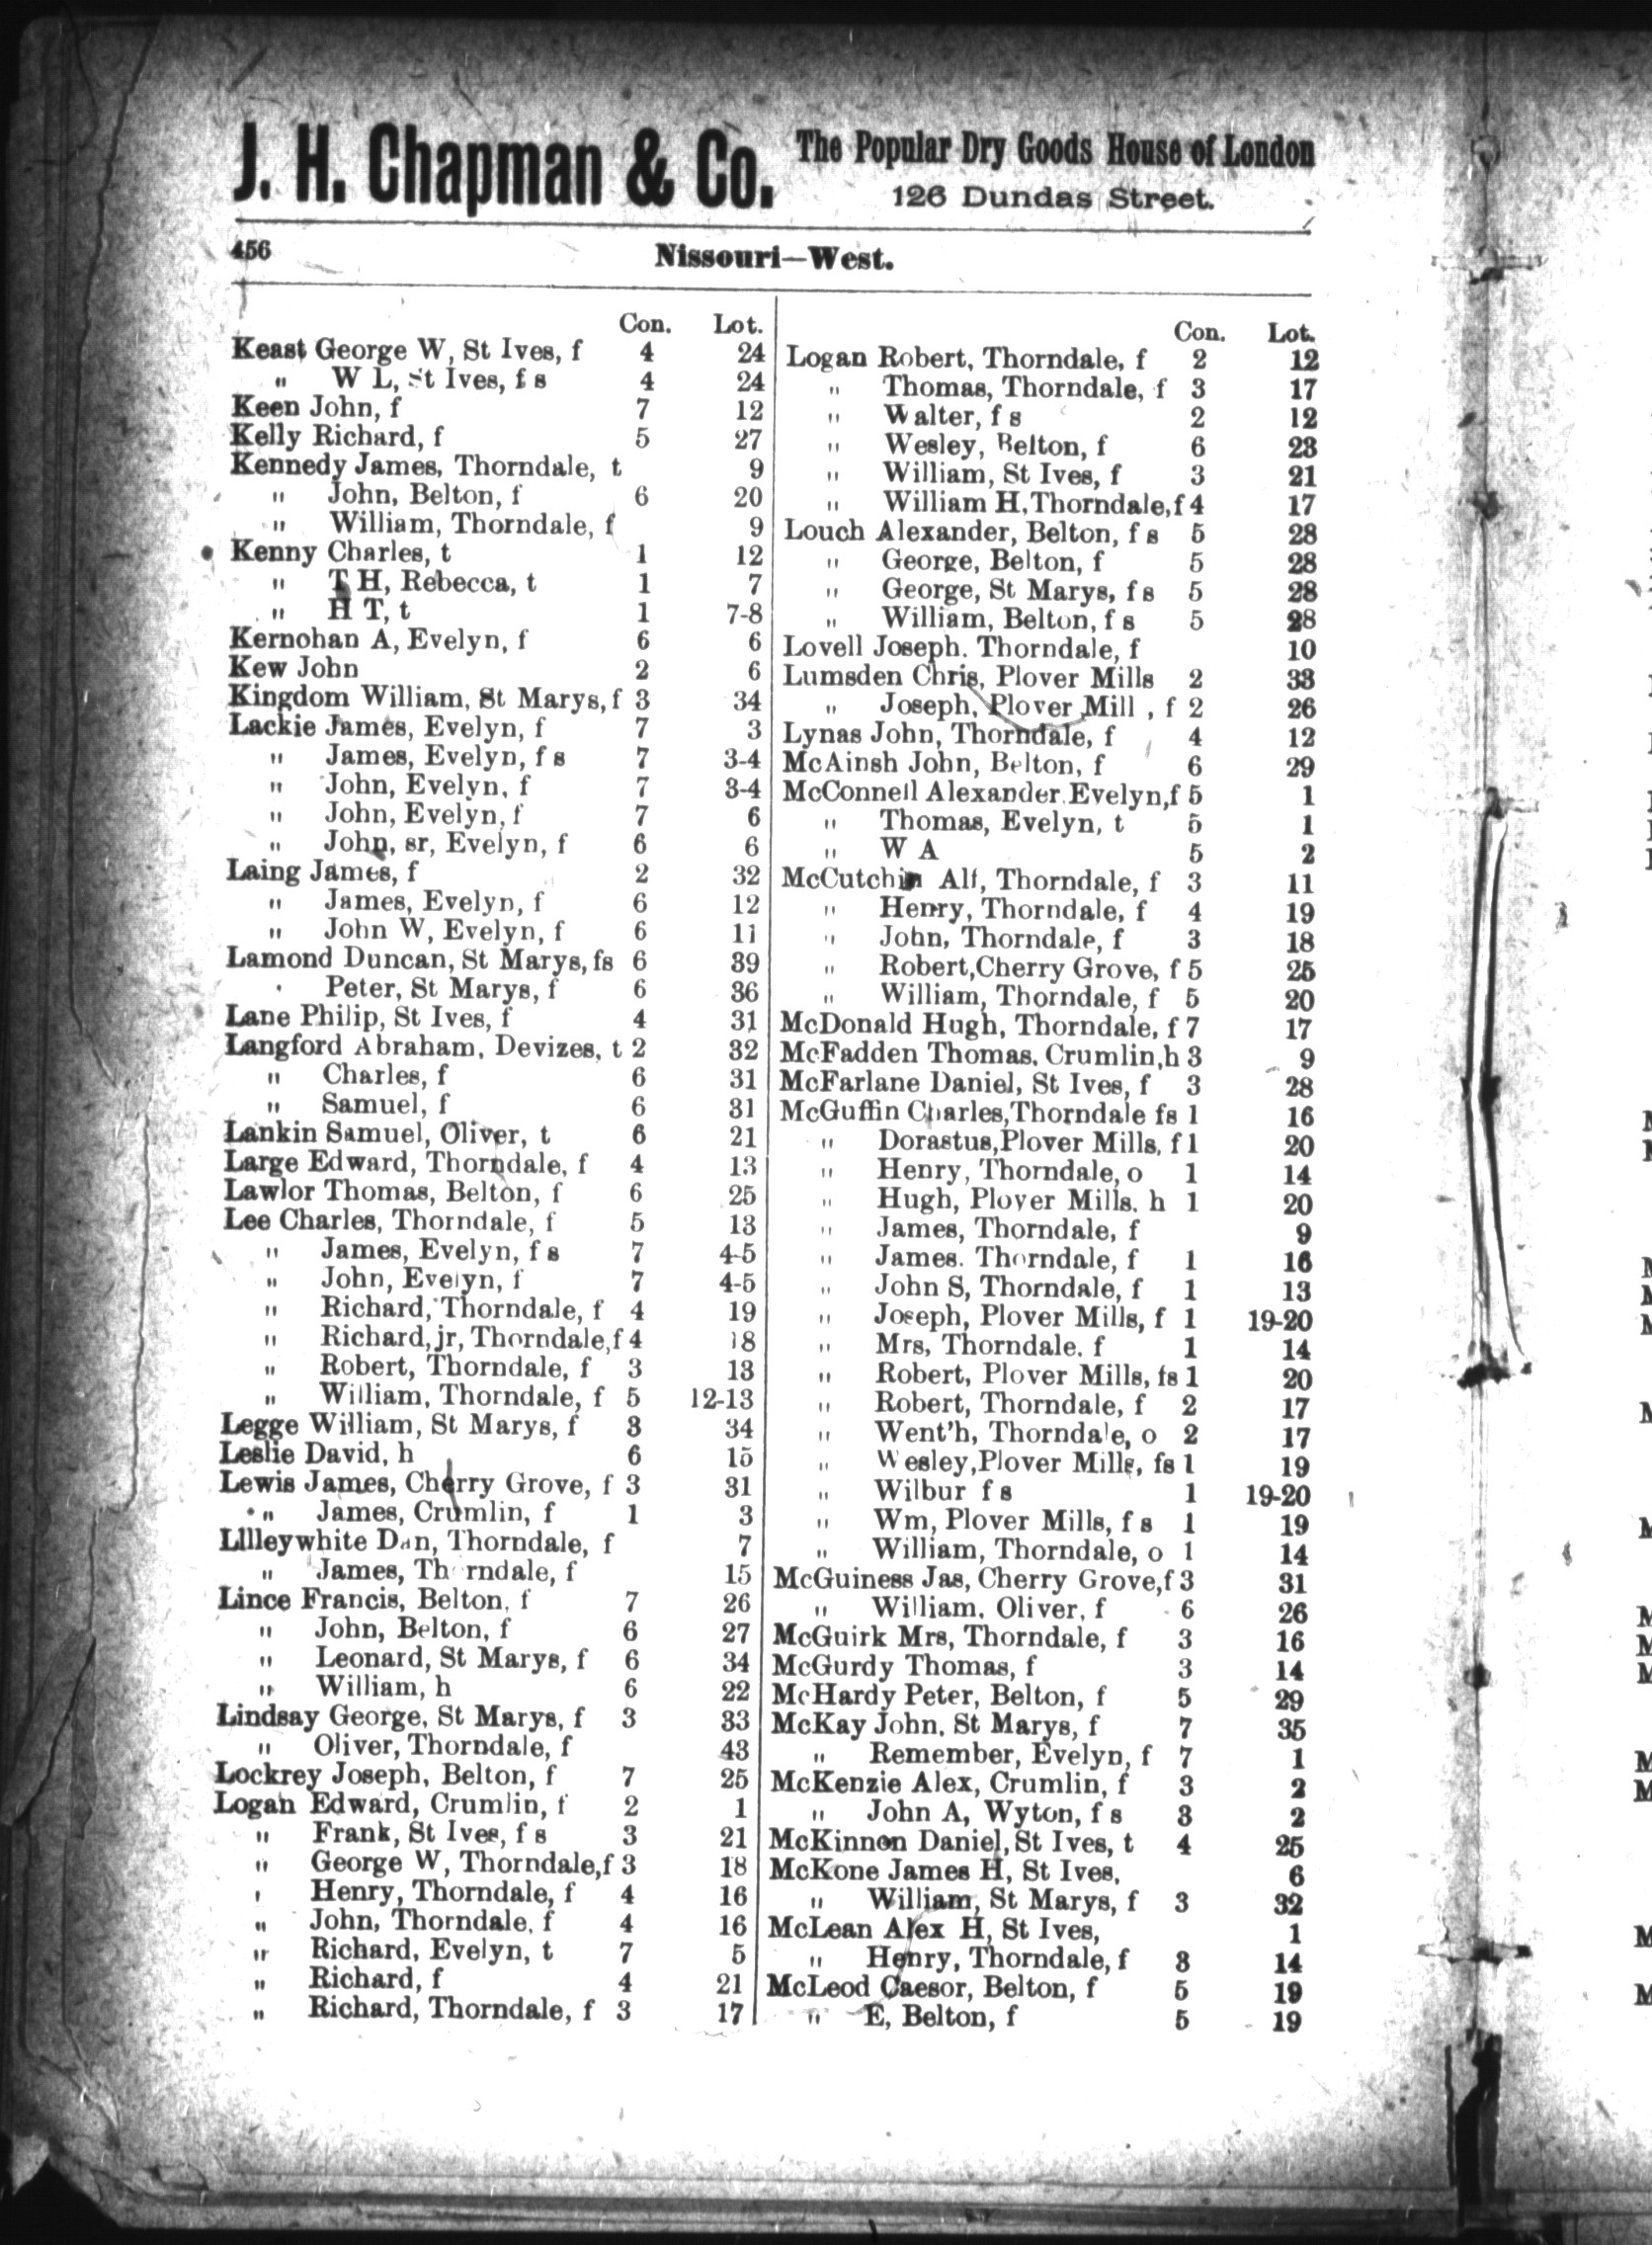 J. H. Chapman & Co. The Popular Dry Goods House of London
126 Dundas Street.
456 Nissouri—West.
Con. Lot.
Keast George W, St Ives, f 4 24
" W L, St Ives, f s 4 24
Keen John, f 7 12
Kelly Richard, f 5 27
Kennedy James, Thorndale, t 9
" John, Belton, f 6 20
" William, Thorndale, f 9
Kenny Charles, t 1 12
" T H, Rebecca, t 1 7
" H T, t 1 7-8
Kernohan A, Evelyn, f 6 6
Kew John 2 6
Kingdom William, St Marys, f 3 34
Lackie James, Evelyn, f 7 3
" James, Evelyn, f s 7 3-4
" John, Evelyn, f 7 3-4
" John, Evelyn, f 7 6
" John, sr, Evelyn, f 6 6
Laing James, f 2 32
" James, Evelyn, f 6 12
" John W, Evelyn, f 6 11
Lamond Duncan, St Marys, fs 6 39
" Peter, St Marys, f 6 36
Lane Philip, St Ives, f 4 31
Langford Abraham, Devizes, t 2 32
" Charles, f 6 31
" Samuel, f 6 31
Lankin Samuel, Oliver, t 6 21
Large Edward, Thorndale, f 4 13
Lawlor Thomas, Belton, f 6 25
Lee Charles, Thorndale, f 5 13
" James, Evelyn, f s 7 4-5
" John, Evelyn, f 7 4-5
" Richard, Thorndale, f 4 19
" Richard, jr, Thorndale, f 4 18
" Robert, Thorndale, f 3 13
" William, Thorndale, f 5 12-13
Legge William, St Marys, f 3 34
Leslie David, h 6 15
Lewis James, Cherry Grove, f 3 31
" James, Crumlin, f 1 3
Lilleywhite Dan, Thorndale, f 7
" James, Th rndale, f 15
Lince Francis, Belton, f 7 26
" John, Belton, f 6 27
" Leonard, St Marys, f 6 34
" William, h 6 22
Lindsay George, St Marys, f 3 33
" Oliver, Thorndale, f 43
Lockrey Joseph, Belton, f 7 25
Logan Edward, Crumlin, f 2 1
" Frank, St Ives, f s 3 21
" George W, Thorndale, f 3 18
" Henry, Thorndale, f 4 16
" John, Thorndale, f 4 16
" Richard, Evelyn, t 7 5
" Richard, f 4 21
" Richard, Thorndale, f 3 17
Con. Lot.
Logan Robert, Thorndale, f 2 12
" Thomas, Thorndale, f 3 17
" Walter, f s 2 12
" Wesley, Belton, f 6 23
" William, St Ives, f 3 21
" William H, Thorndale, f 4 17
Louch Alexander, Belton, f s 5 28
" George, Belton, f 5 28
" George, St Marys, f s 5 28
" William, Belton, f s 5 28
Lovell Joseph. Thorndale, f 10
Lumsden Chris, Plover Mills 2 33
" Joseph, Plover Mill , f 2 26
Lynas John, Thorndale, f 4 12
McAinsh John, Belton, f 6 29
McConnell Alexander. Evelyn, f 5 1
" Thomas, Evelyn, t 5 1
" W A 5 2
McCutchin Alf, Thorndale, f 3 11
" Henry, Thorndale, f 4 19
" John, Thorndale, f 3 18
" Robert, Cherry Grove, f 5 25
" William, Thorndale, f 5 20
McDonald Hugh, Thorndale, f 7 17
McFadden Thomas, Crumlin, h 3 9
McFarlane Daniel, St Ives, f 3 28
McGuffin Charles, Thorndale fs 1 16
" Dorastus, Plover Mills, f 1 20
" Henry, Thorndale, o 1 14
" Hugh, Plover Mills. h 1 20
" James, Thorndale, f 9
" James. Thorndale, f 1 16
" John S, Thorndale, f 1 13
" Joseph, Plover Mills, f 1 19-20
" Mrs, Thorndale. f 1 14
" Robert, Plover Mills, fs 1 20
" Robert, Thorndale, f 2 17
" Went'h, Thorndale, o 2 17
" Wesley, Plover Mills, fs 1 19
" Wilbur f s 1 19-20
" Wm, Plover Mills, f s 1 19
" William, Thorndale, o 1 14
McGuiness Jas, Cherry Grove, f 3 31
" William, Oliver, f 6 26
McGuirk Mrs, Thorndale, f 3 16
McGurdy Thomas, f 3 14
McHardy Peter, Belton, f 5 29
McKay John, St Marys, f 7 35
" Remember, Evelyn, f 7 1
McKenzie Alex, Crumlin, f 3 2
" John A, Wyton, f s 3 2
McKinnon Daniel, St Ives, t 4 25
McKone James H, St Ives, 6
" William, St Marys, f 3 32
McLean Alex H, St Ives, 1
" Henry, Thorndale, f 3 14
McLeod Caesor, Belton, f 5 19
" E, Belton, f 5 19